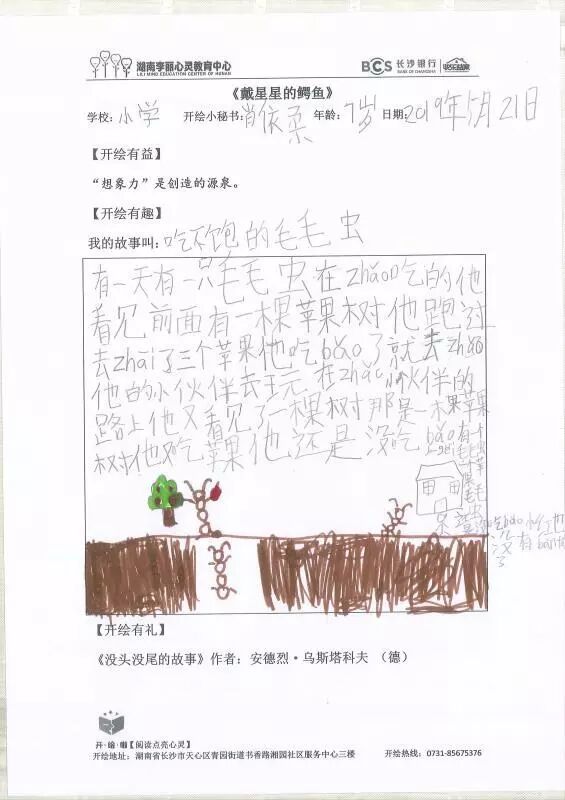 湖南李丽心灵教育中心
LILI MIND EDUCATION CENTER OF HUNAN
BCS 长沙银行
BANK OF CHANGSHA
《戴星星的鳄鱼》
学校:小学 开绘小秘书:肖依柔 年龄:7岁 日期:2019年5月21日
【开绘有益】
“想象力”是创造的源泉。
【开绘有趣】
我的故事叫:吃不饱的毛毛虫
有一天有一只毛毛虫在zhǎo吃的他
看见前面有一棵苹果树他跑过
去zhāi了三个苹果他吃bǎo了就去zhǎo
他的小伙伴去玩在zhǎo小伙伴的
路上他又看见了一棵树那是一棵苹果
树他吃苹果他还是没吃bǎo
【开绘有礼】
《没头没尾的故事》作者:安德烈·乌斯塔科夫 (德)
开·绘·啦【阅读点亮心灵】
开绘地址:湖南省长沙市天心区青园街道书香路湘园社区服务中心三楼 开绘热线:0731-85675376